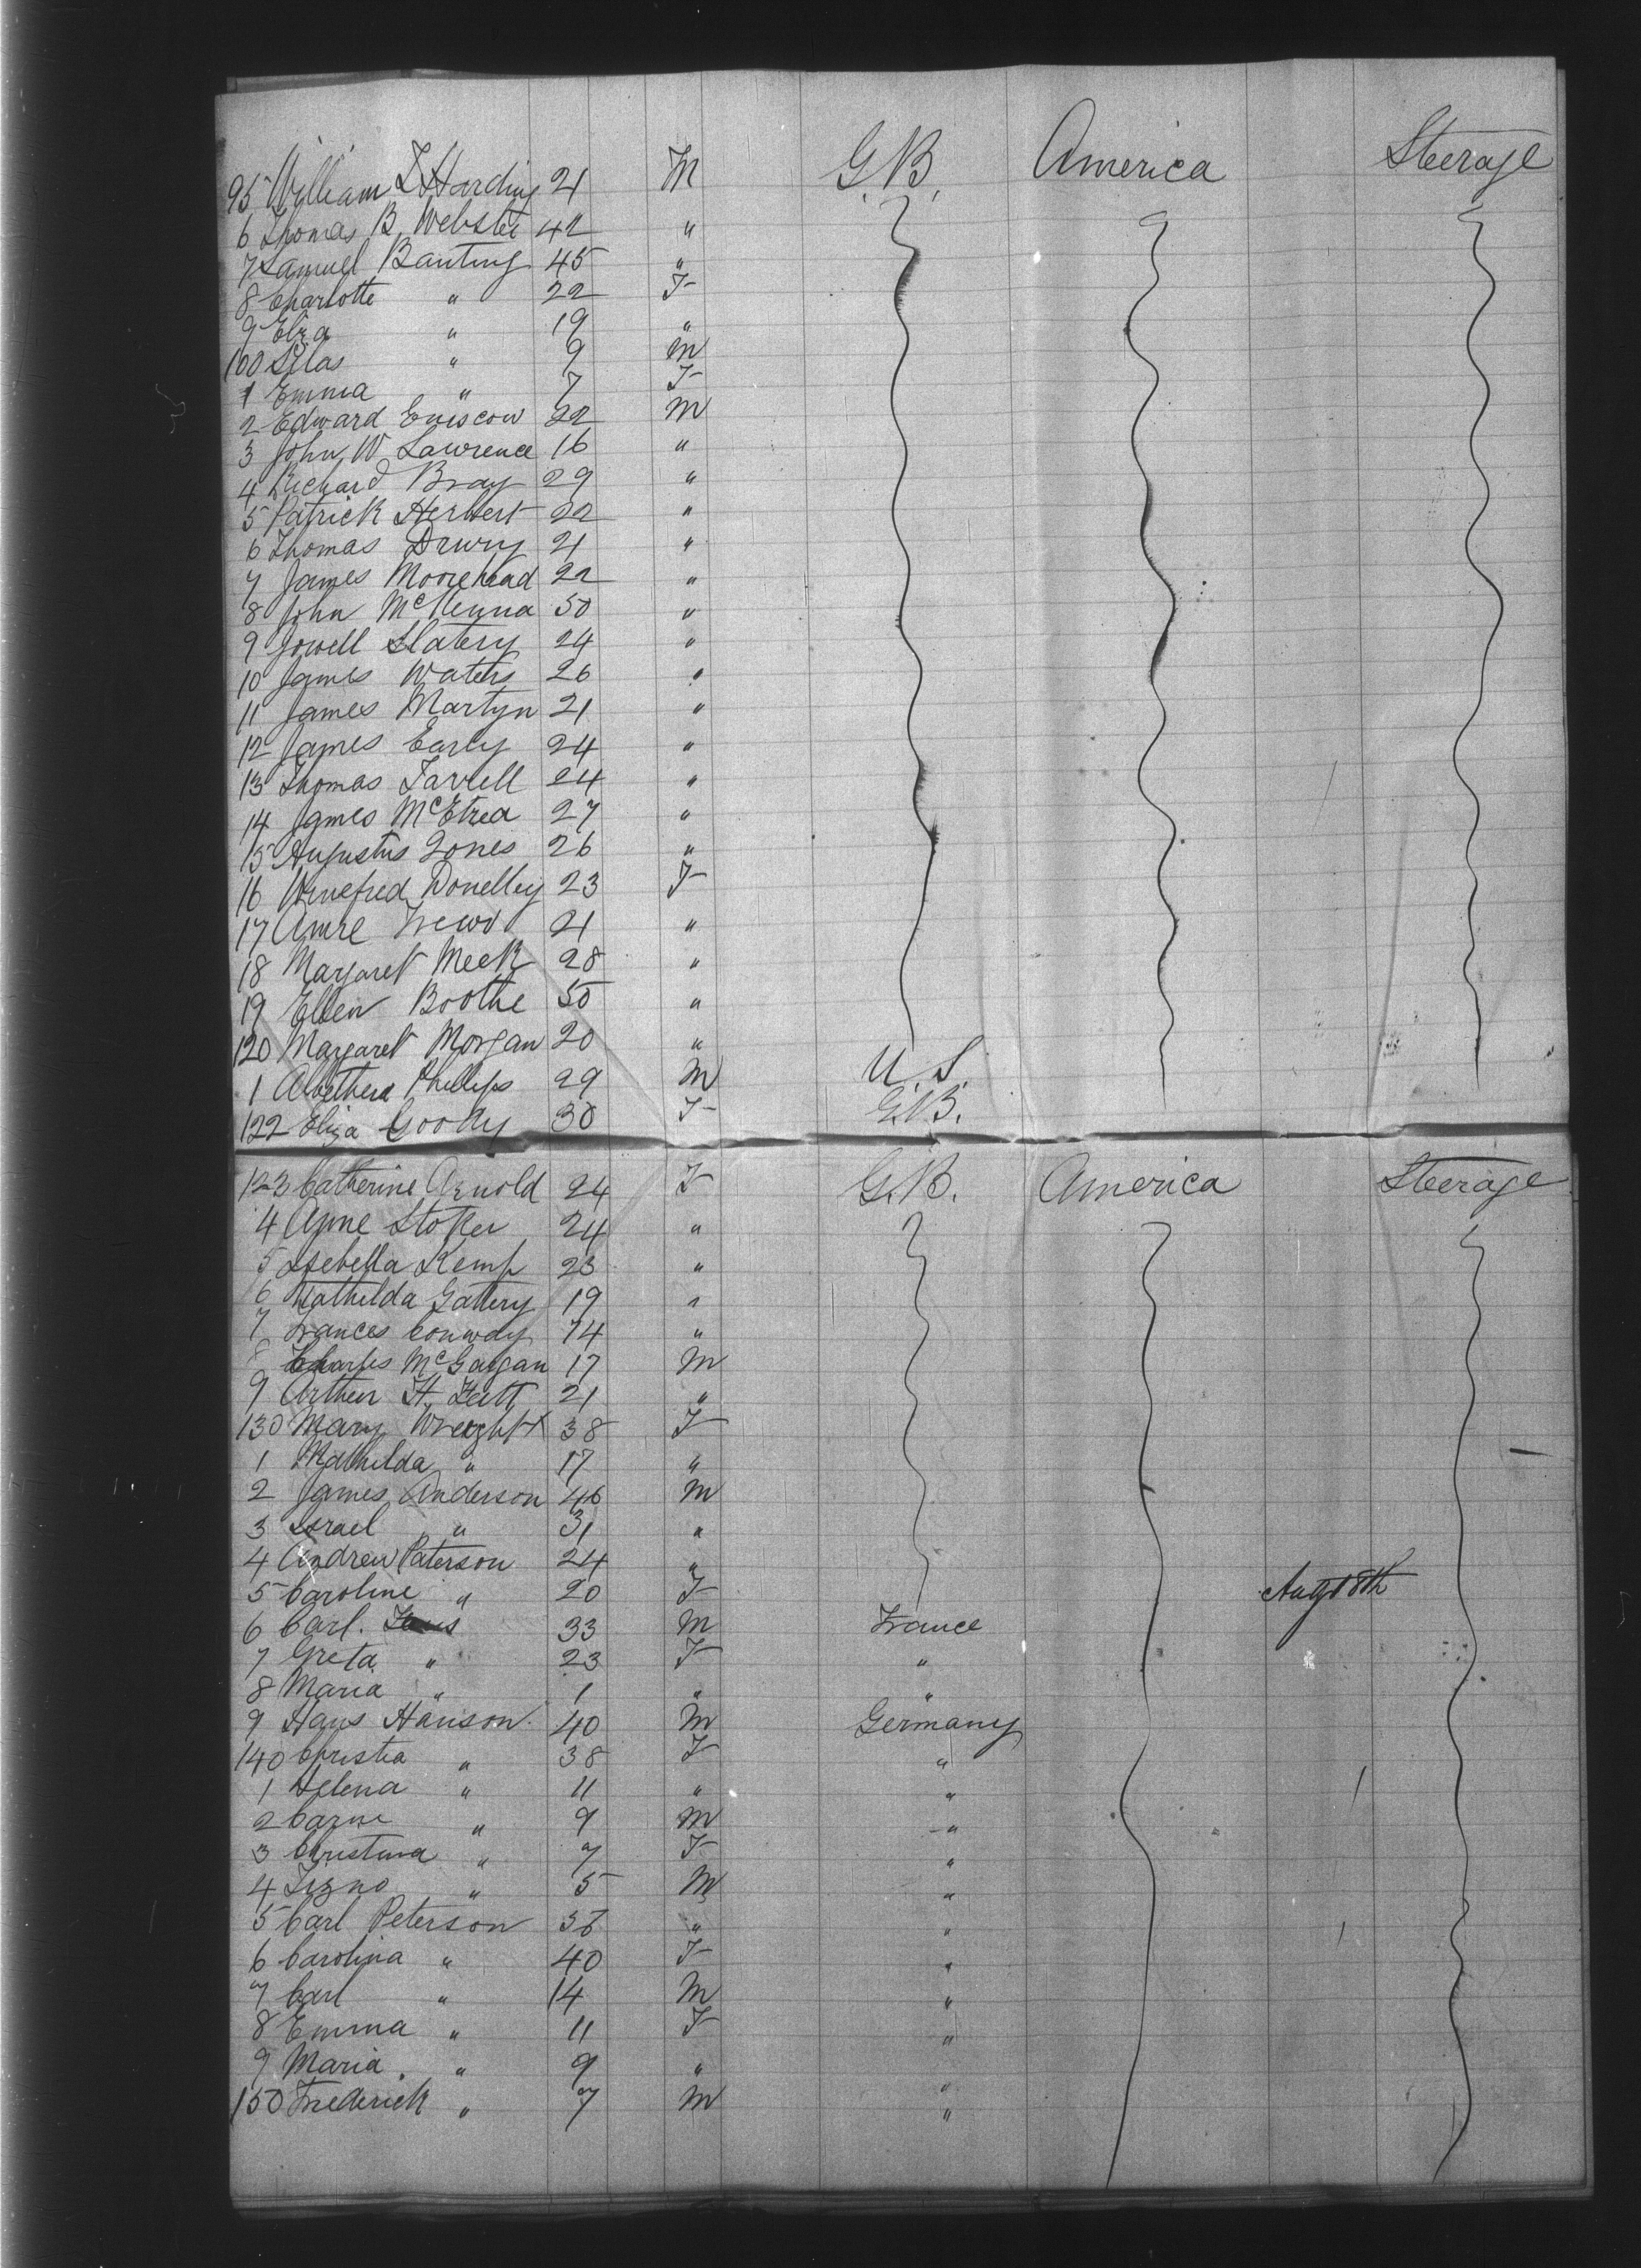 95 William T Harding 21 M G.B. America Steerage
6 Thomas B. Webster 42 "
7 Samuel Banting 45 "
8 Charlotte " 22 F
9 Eliza " 19 "
100 Silas " 9 M
1 Emma " 7 F
2 Edward Eniscow 22 M
3 John W Lawrence 16 "
4 Richard Bray 29 "
5 Patrick Herbert 22 "
6 Thomas Drury 21 "
7 James Moorehead 22 "
8 John McKenna 50 "
9 Jowell Slatery 24 "
10 James Waters 26 "
11 James Martyn 21 "
12 James Early 24 "
13 Thomas Farrell 24 "
14 James McEtrea 27 "
15 Augustus Jones 26 "
16 Winefred Donelley 23 F
17 Anne 21 "
18 Margaret Meek 28 "
19 Ellen Boothe 50 "
120 Margaret Morgan 20 "
1 Phillips 29 M U.S.
122 Eliza Goody 30 F G.B.
123 Catherine Arnold 24 F G.B. America Steerage
4 Anne Stoker 24 "
5 Isebella Kemp 23 "
6 Mathilda Gattery 19 "
7 Frances Conway 74 "
8 Charles McGaigan 17 M
9 Arthur H. 21 "
130 Mary Wreight 38 F
1 Mathilda " 17 "
2 James Anderson 46 M
3 Israel " 31 "
4 Andrew Paterson 24 "
5 Caroline " 20 F Aug 18th
6 Carl 33 M France
7 Greta " 23 F "
8 Maria " 1 " "
9 Hans Hanson 40 M Germany
140 Christia " 38 F "
1 Helena " 11 " "
2 " 9 M "
3 Christina " 7 F "
4 " 5 M "
5 Carl Peterson 38 " "
6 Carolina " 40 F "
7 Carl " 14 M "
8 Emma " 11 F "
9 Maria " 9 " "
150 Frederick " 7 M "